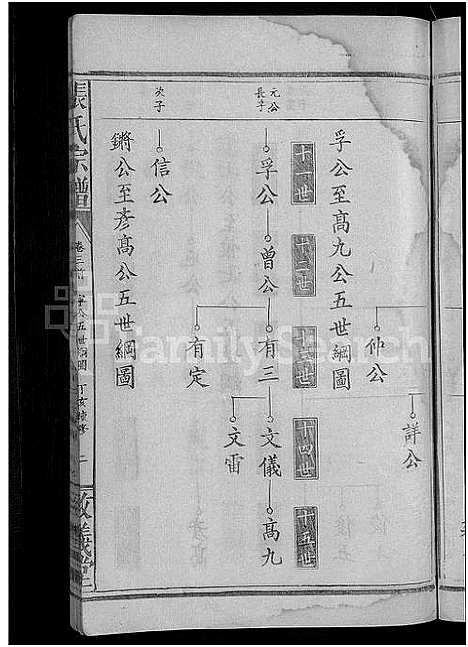 孚公至高九公五世綱圖
仲公
詳公
十一世
十二世
十三世
十四世
十五世
元公
長子
孚公
曾公
有三
文儀
高九
文雷
有定
次子
信公
鏘公至彥高公五世綱圖
張氏宗譜
卷三首
敦義堂
FamilySearch